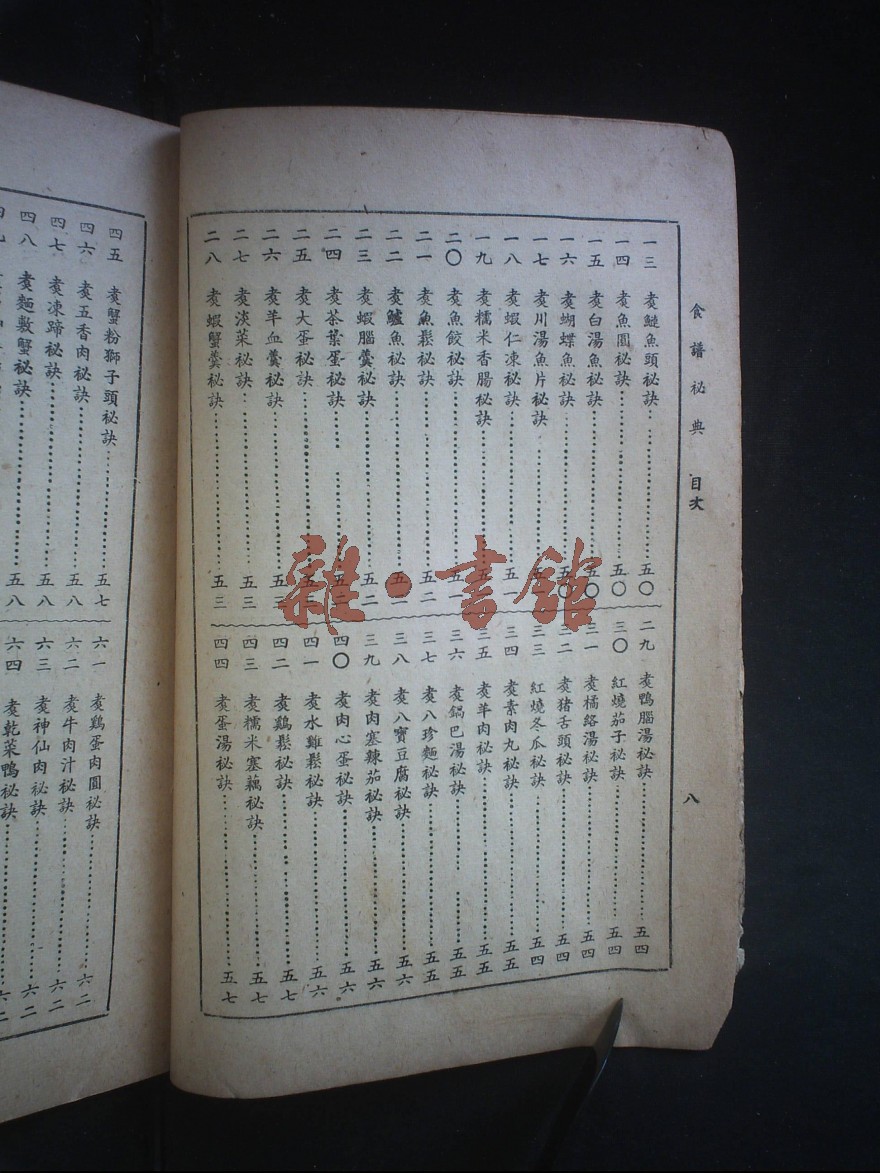 食譜秘典 目次 八
一三 煑鰱魚頭秘訣 五〇
一四 煑魚圓秘訣 五〇
一五 煑白湯魚秘訣 五〇
一六 煑蝴蝶魚秘訣 五〇
一七 煑川湯魚片秘訣 五
一八 煑蝦仁凍秘訣 五一
一九 煑糯米香腸秘訣 五
二〇 煑魚餃秘訣 五一
二一 煑魚鬆秘訣 五二
二二 煑鱸魚秘訣 五
二三 煑蝦腦羹秘訣 五二
二四 煑茶葉蛋秘訣 五
二五 煑大蛋秘訣 五
二六 煑羊血羹秘訣 五三
二七 煑淡菜秘訣 五三
二八 煑蝦蟹羹秘訣 五三
二九 煑鴨腦湯秘訣 五四
三〇 紅燒茄子秘訣 五四
三一 煑橘絡湯秘訣 五四
三二 煑猪舌頭秘訣 五四
三三 紅燒冬瓜秘訣 五四
三四 煑素肉丸秘訣 五五
三五 煑羊肉秘訣 五五
三六 煑鍋巴湯秘訣 五五
三七 煑八珍麵秘訣 五五
三八 煑八寶豆腐秘訣 五六
三九 煑肉塞辣茄秘訣 五六
四〇 煑肉心蛋秘訣 五六
四一 煑水雞鬆秘訣 五六
四二 煑鷄鬆秘訣 五七
四三 煑糯米塞藕秘訣 五七
四四 煑蛋湯秘訣 五七
四五 煑蟹粉獅子頭秘訣 五七
四六 煑五香肉秘訣 五八
四七 煑凍蹄秘訣 五八
四八 煑麵敷蟹秘訣 五八
六一 煑鷄蛋肉圓秘訣 六二
六二 煑牛肉汁秘訣 六二
六三 煑神仙肉秘訣 六二
六四 煑乾菜鴨秘訣 六二
雜·書館